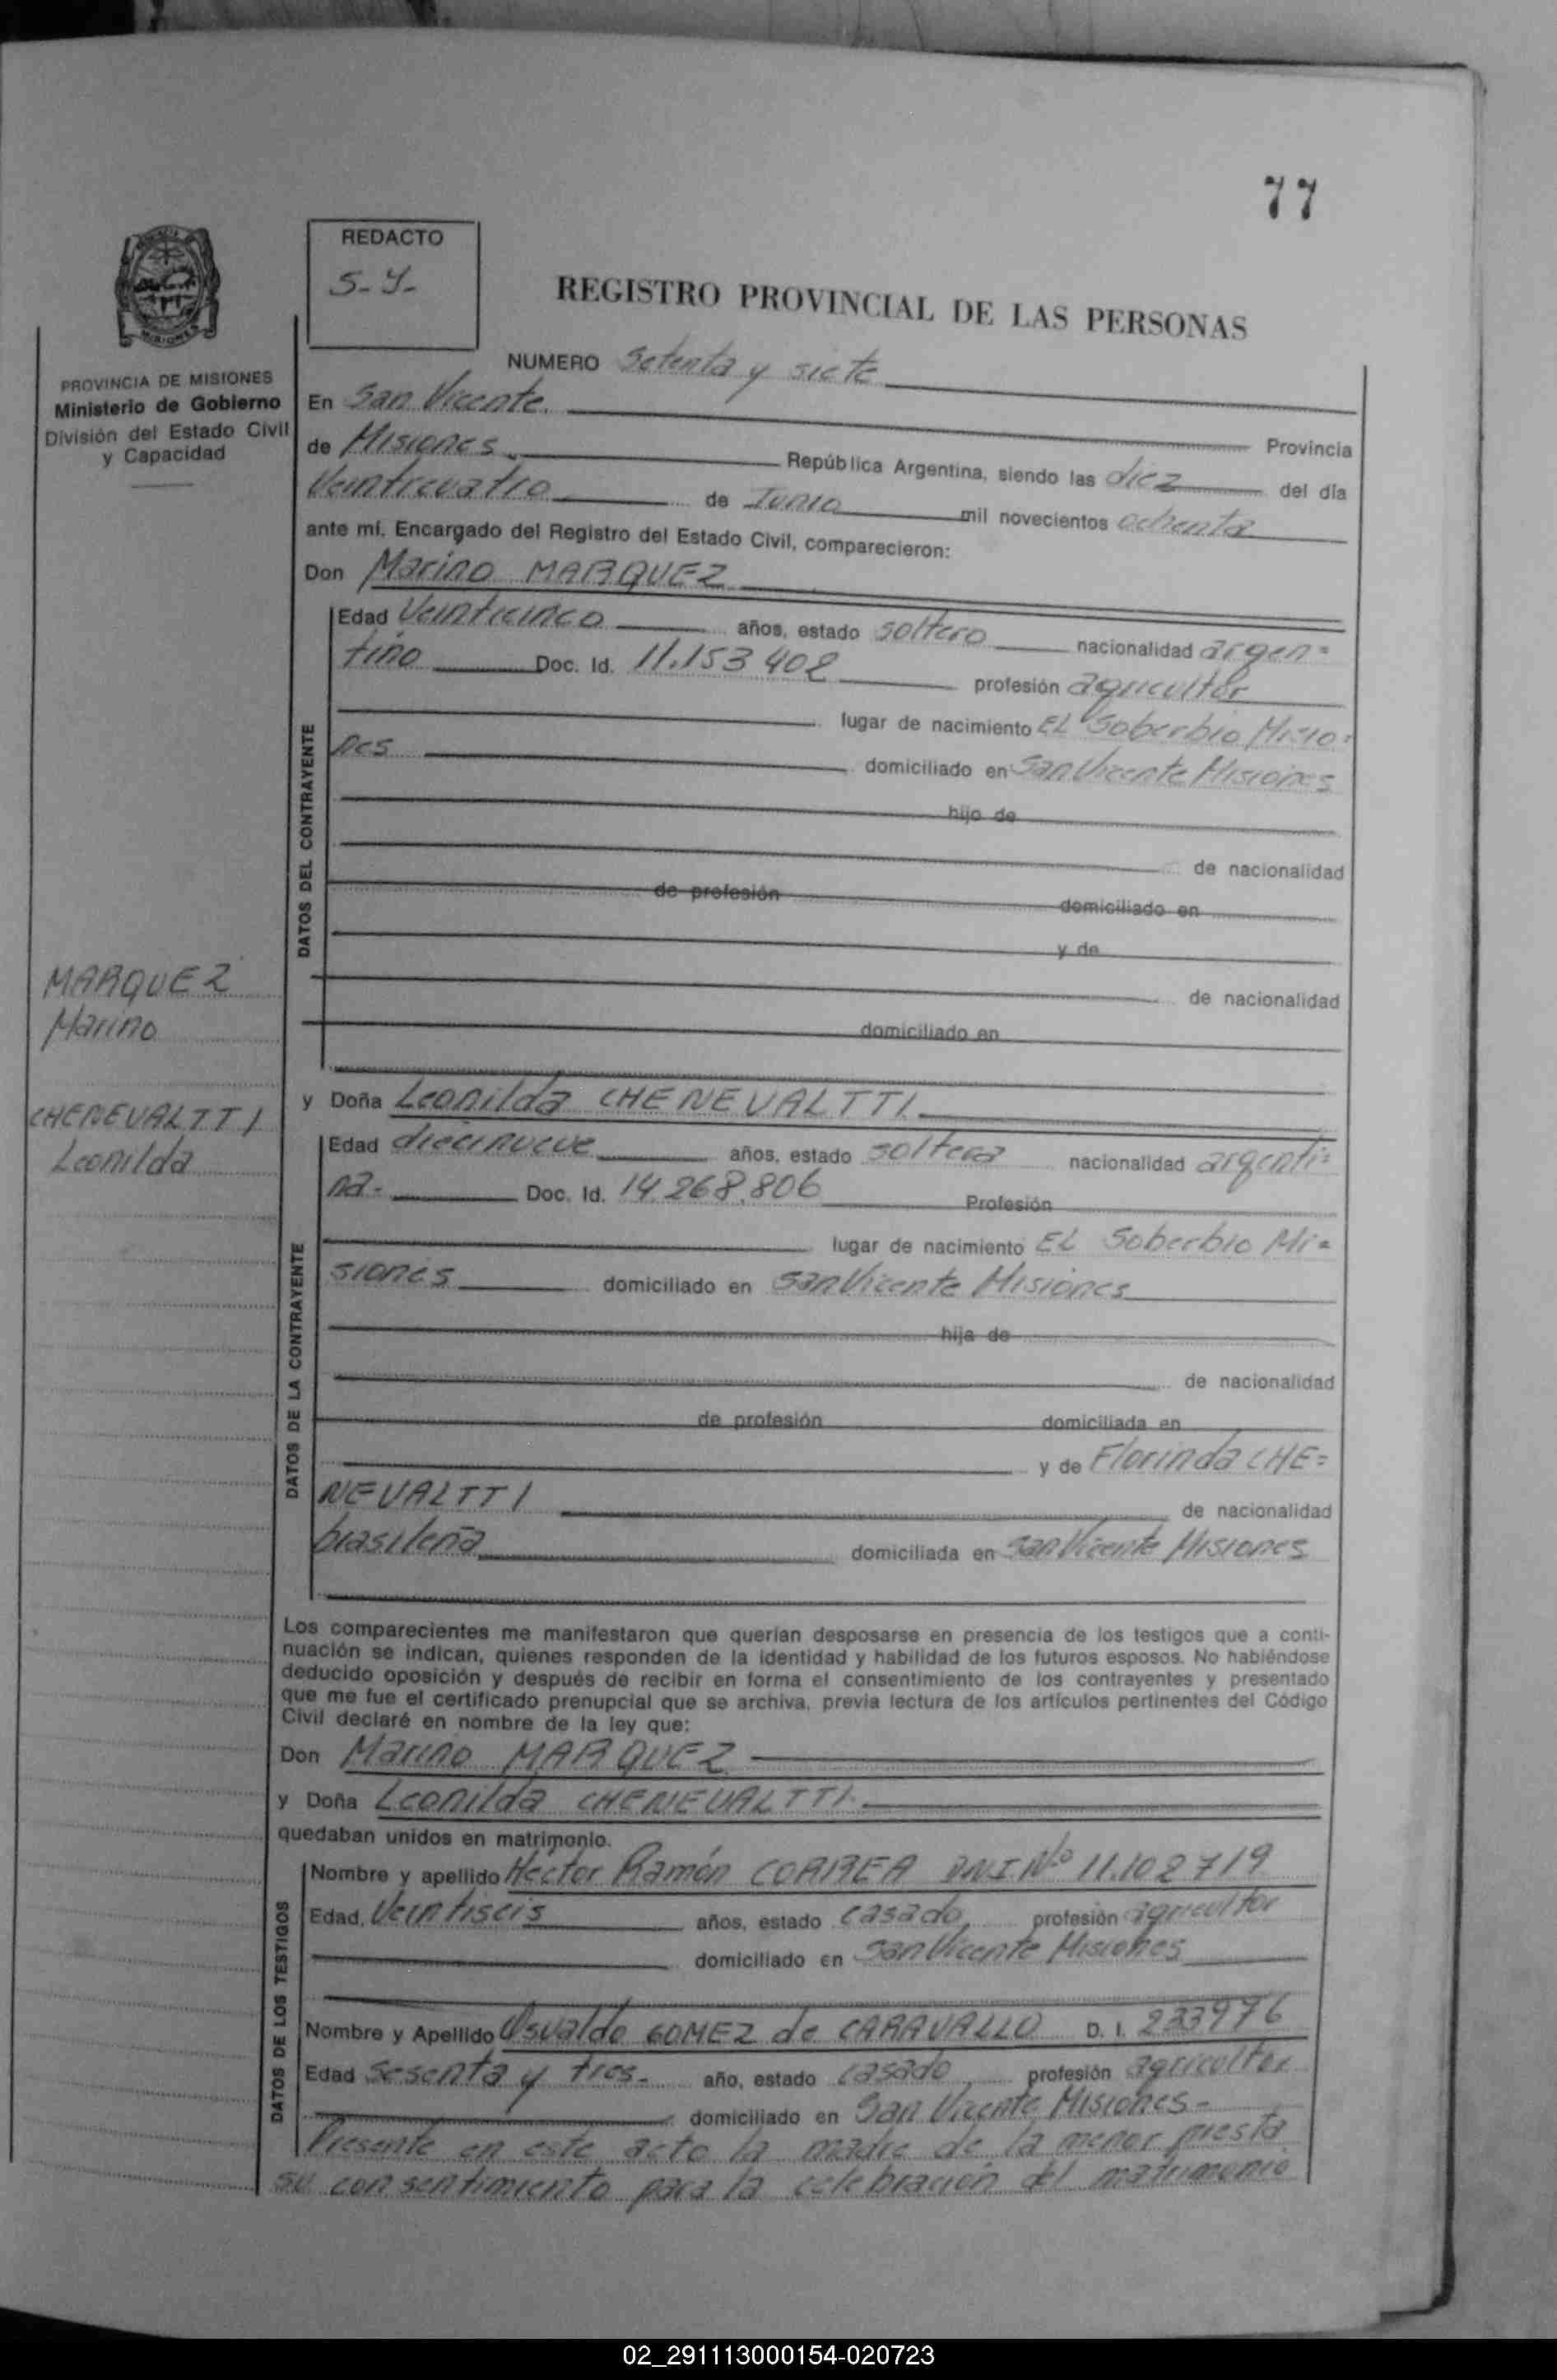 77
REDACTO
S-Y-
REGISTRO PROVINCIAL DE LAS PERSONAS
PROVINCIA DE MISIONES
Ministerio de Gobierno
División del Estado Civil
y Capacidad
NUMERO Setenta y siete
En San Vicente. Provincia
de Misiones. República Argentina, siendo las diez del día
Veinticuatro de Junio mil novecientos ochenta
ante mí, Encargado del Registro del Estado Civil, comparecieron:
Don Marino MARQUEZ
DATOS DEL CONTRAYENTE
Edad Veinticinco años, estado soltero nacionalidad argen=
tino Doc. Id. 11.153 402 profesión agricultor
lugar de nacimiento EL Soberbio Misio=
nes domiciliado en San Vicente Misiones
hijo de
de nacionalidad
de profesión domiciliado en
y de
de nacionalidad
domiciliado en
MARQUEZ
Marino
CHENEVALTTI
Leonilda
y Doña Leonilda CHENEVALTTI
DATOS DE LA CONTRAYENTE
Edad diecinueve años, estado soltera nacionalidad argenti=
na- Doc. Id. 14.268.806 Profesión
lugar de nacimiento EL Soberbio Mi=
siones domiciliado en San Vicente Misiones
hija de
de nacionalidad
de profesión domiciliada en
y de Florinda CHE=
NEVALTTI de nacionalidad
brasileña domiciliada en San Vicente Misiones
Los comparecientes me manifestaron que querían desposarse en presencia de los testigos que a conti-
nuación se indican, quienes responden de la identidad y habilidad de los futuros esposos. No habiéndose
deducido oposición y después de recibir en forma el consentimiento de los contrayentes y presentado
que me fue el certificado prenupcial que se archiva, previa lectura de los artículos pertinentes del Código
Civil declaré en nombre de la ley que:
Don Marino MARQUEZ
y Doña Leonilda CHENEVALTTI.
quedaban unidos en matrimonio.
DATOS DE LOS TESTIGOS
Nombre y apellido Hector Ramón CORREA DNI.Nº 11.102719
Edad. Veintiseis años, estado casado, profesión agricultor
domiciliado en San Vicente Misiones
Nombre y Apellido Osvaldo GOMEZ de CARAVALLO D. I. 233976
Edad sesenta y tres- año, estado casado profesión agricultor
domiciliado en San Vicente Misiones-
Presente en este acto la madre de la menor presta
su consentimiento para la celebración del matrimonio
02_291113000154-020723